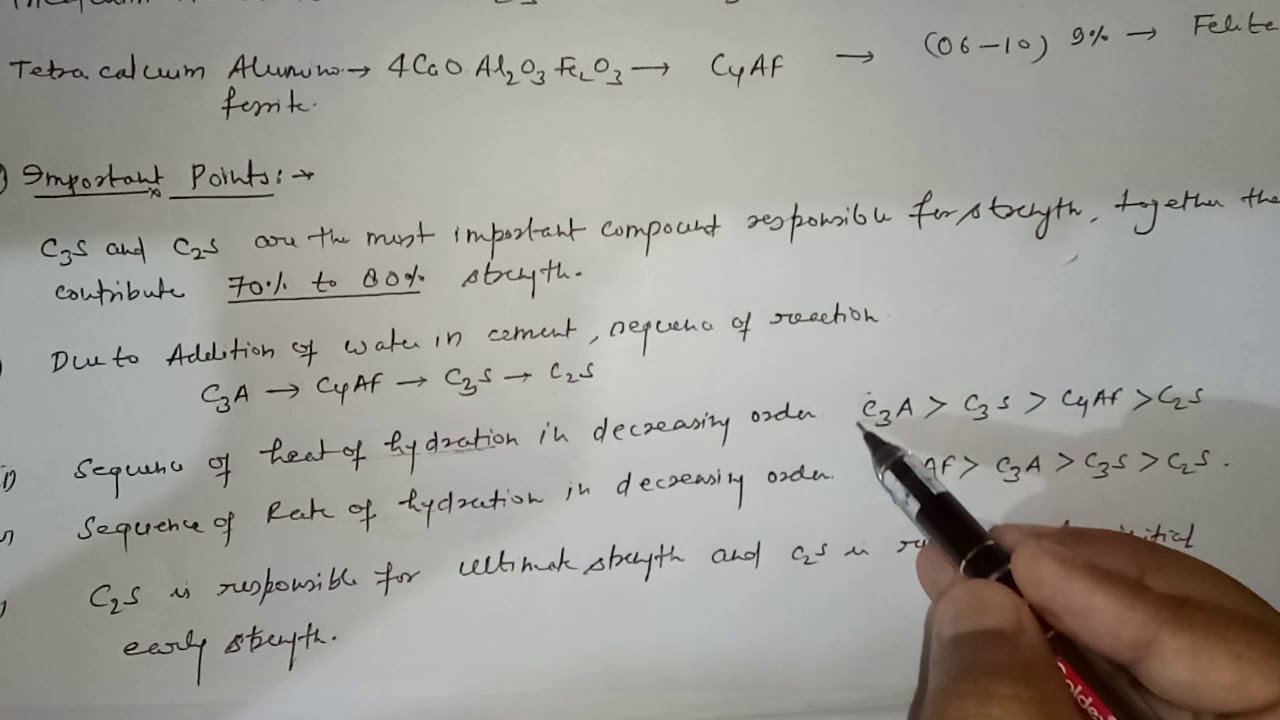 Tetra calcium Alumino → 4CaO Al2O3 Fe2O3 → C4AF → (06-10) 9% → Felite
ferrite.
Important Points: →
C3S and C2S are the most important compound responsible for strength, together the
contribute 70% to 80% strength.
Due to Addition of water in cement, sequence of reaction
C3A → C4AF → C3S → C2S
Sequence of heat of hydration in decreasing order C3A > C3S > C4AF > C2S
Sequence of Rate of hydration in decreasing order. AF > C3A > C3S > C2S.
C2S is responsible for ultimate strength and C2S is initial
early strength.